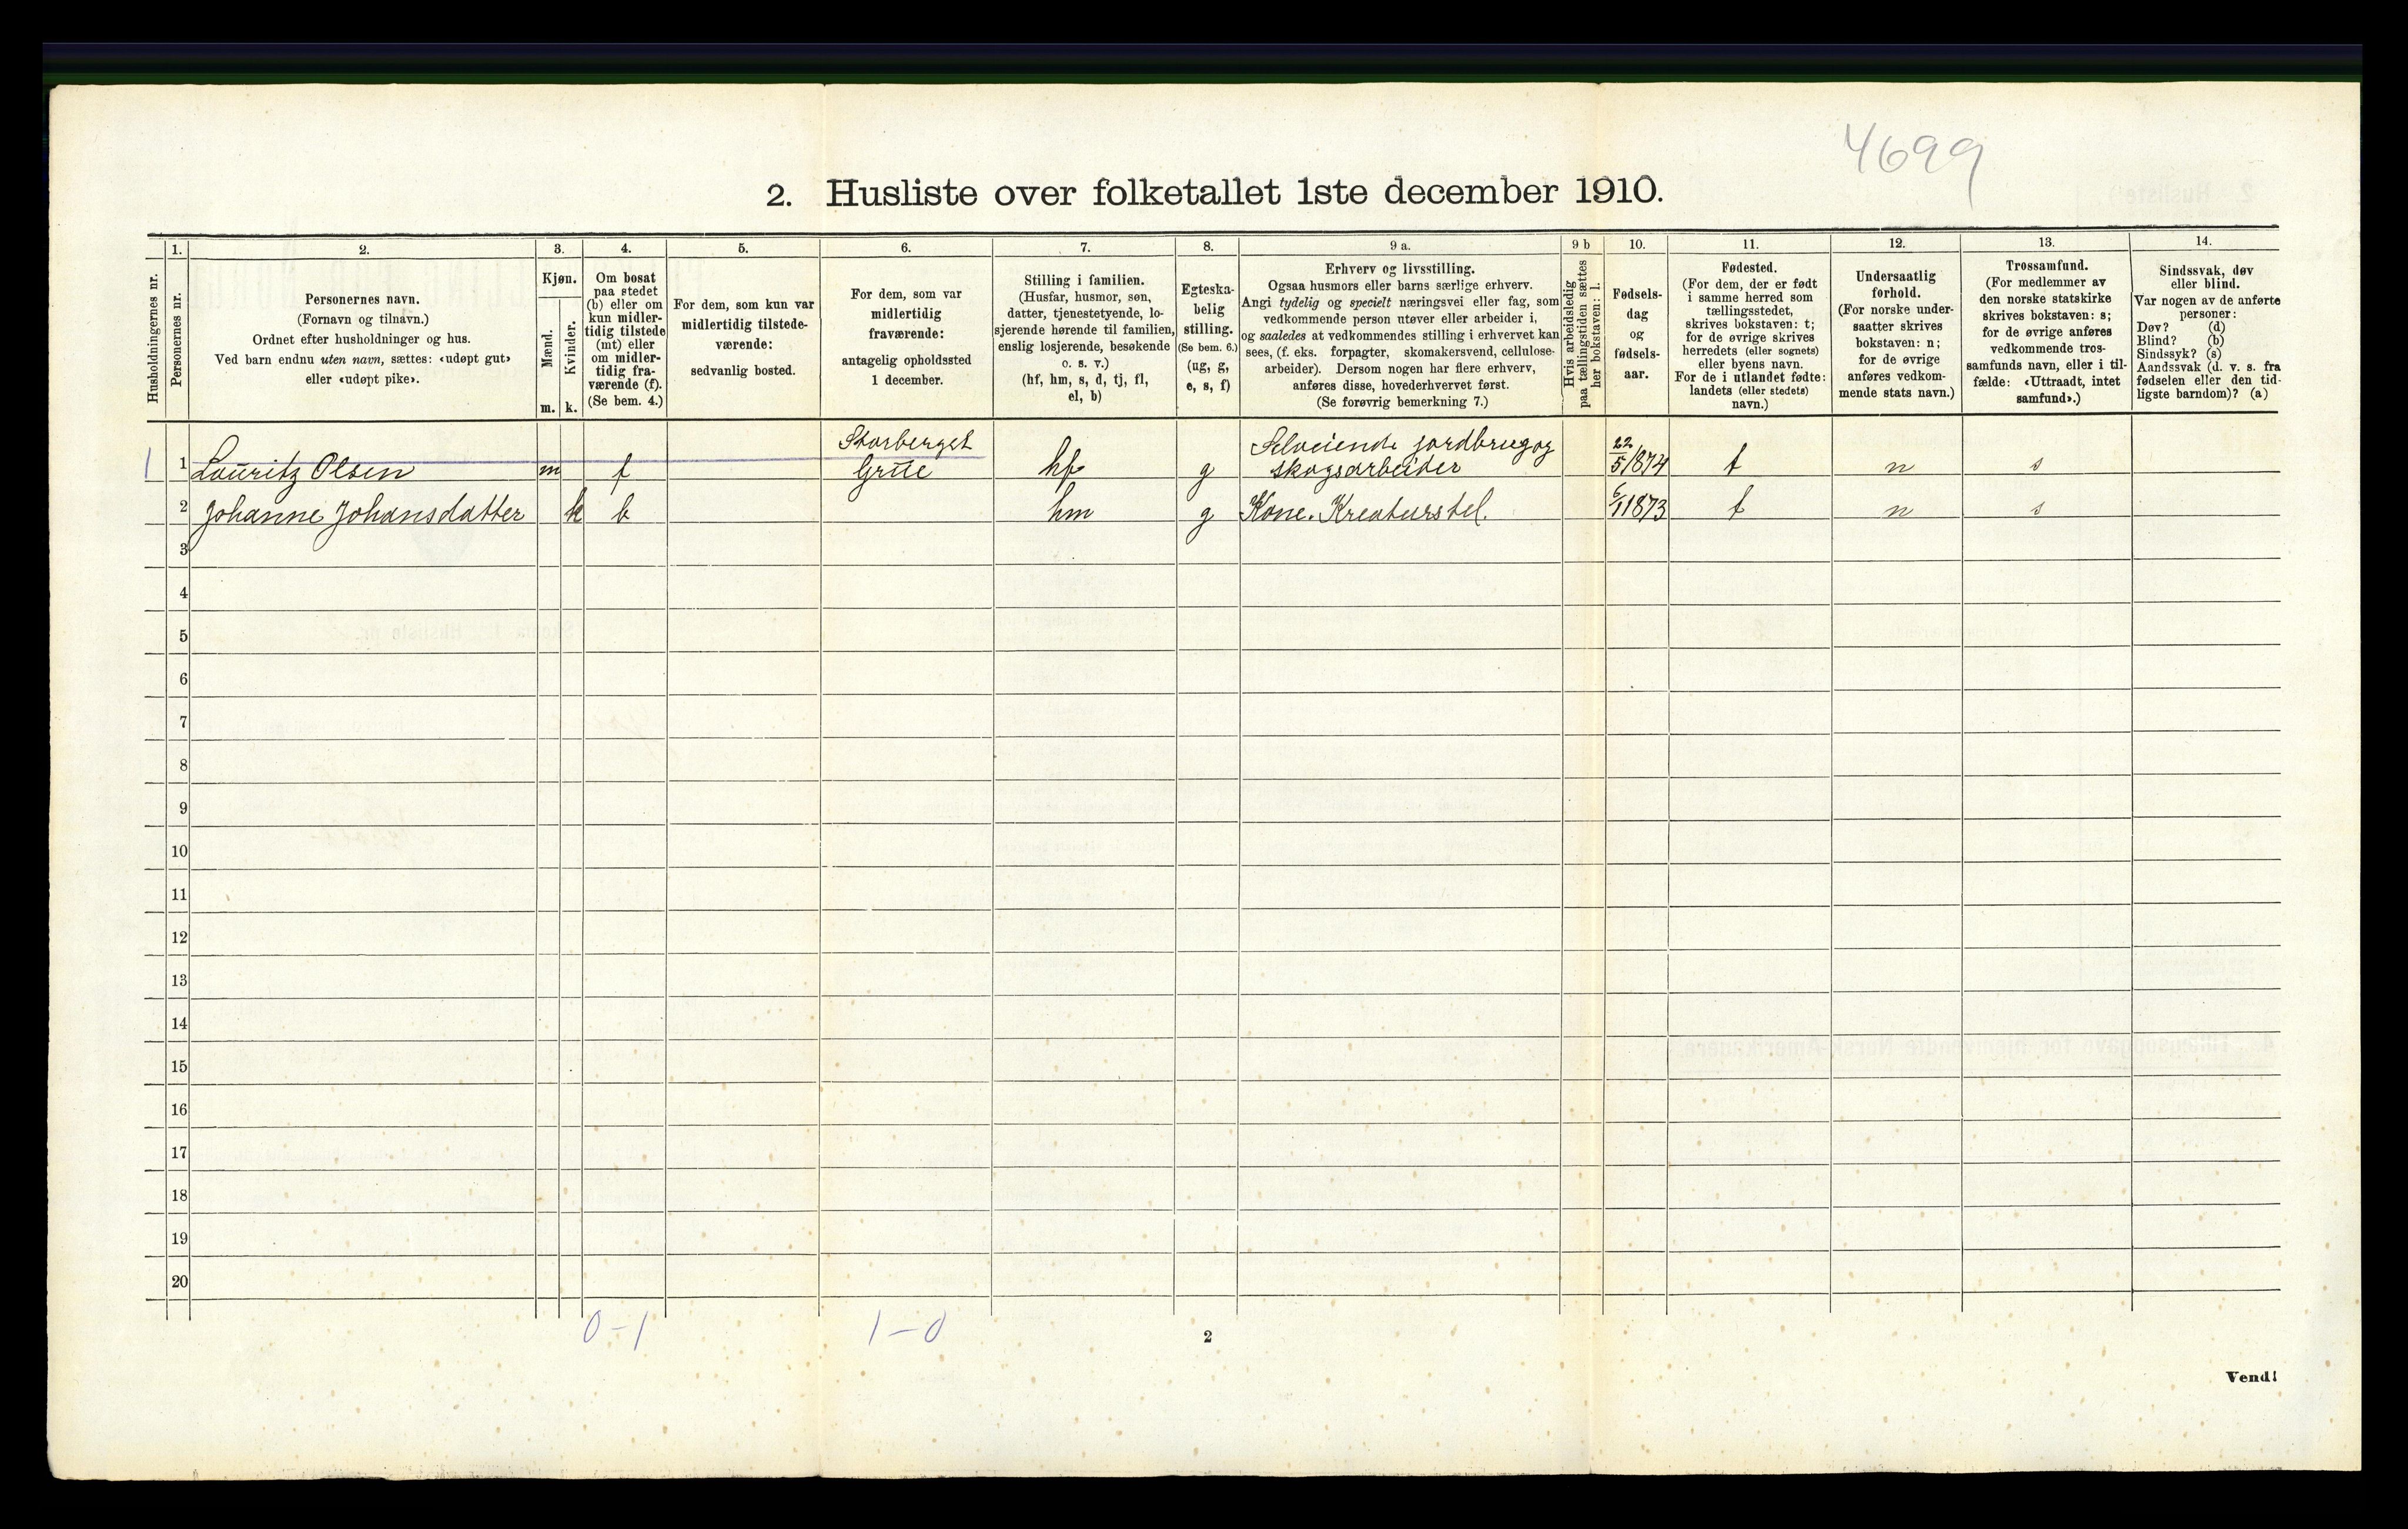 4699
2. Husliste over folketallet 1ste december 1910.
Husholdningernes nr.
1.
Personernes nr.
2.
Personernes navn.
(Fornavn og tilnavn.)
Ordnet efter husholdninger og hus.
Ved barn endnu uten navn, sættes: «udøpt gut»
eller «udøpt pike».
3.
Kjøn.
Mænd.
Kvinder.
m. k.
4.
Om bosat
paa stedet
(b) eller om
kun midler-
tidig tilstede
(mt) eller
om midler-
tidig fra-
værende (f).
(Se bem. 4.)
5.
For dem, som kun var
midlertidig tilstede-
værende:
sedvanlig bosted.
6.
For dem, som var
midlertidig
fraværende:
antagelig opholdssted
1 december.
7.
Stilling i familien.
(Husfar, husmor, søn,
datter, tjenestetyende, lo-
sjerende hørende til familien,
enslig losjerende, besøkende
o. s. v.)
(hf, hm, s, d, tj, fl,
el, b)
8.
Egteska-
belig
stilling.
(Se bem. 6.)
(ug, g,
e, s, f)
9 a.
Erhverv og livsstilling.
Ogsaa husmors eller barns særlige erhverv.
Angi tydelig og specielt næringsvei eller fag, som
vedkommende person utøver eller arbeider i,
og saaledes at vedkommendes stilling i erhvervet kan
sees, (f. eks. forpagter, skomakersvend, cellulose-
arbeider). Dersom nogen har flere erhverv,
anføres disse, hovederhvervet først.
(Se forøvrig bemerkning 7.)
9 b
Hvis arbeidsledig
paa tællingstiden sættes
her bokstaven: l.
10.
Fødsels-
dag
og
fødsels-
aar.
11.
Fødested.
(For dem, der er født
i samme herred som
tællingsstedet,
skrives bokstaven: t;
for de øvrige skrives
herredets (eller sognets)
eller byens navn.
For de i utlandet fødte:
landets (eller stedets)
navn.)
12.
Undersaatlig
forhold.
(For norske under-
saatter skrives
bokstaven: n;
for de øvrige
anføres vedkom-
mende stats navn.)
13.
Trossamfund.
(For medlemmer av
den norske statskirke
skrives bokstaven: s;
for de øvrige anføres
vedkommende tros-
samfunds navn, eller i til-
fælde: «Uttraadt, intet
samfund».)
14.
Sindssvak, døv
eller blind.
Var nogen av de anførte
personer:
Døv? (d)
Blind? (b)
Sindssyk? (s)
Aandssvak (d. v. s. fra
fødselen eller den tid-
ligste barndom)? (a)
1 1 Lauritz Olsen m f Storberget Grue hf g Selveiende jordbrug og skogsarbeider 22/5 1874 t n s
2 Johanne Johansdatter k b hm g Kone. Kreaturstel. 6/1 1873 t n s
3
4
5
6
7
8
9
10
11
12
13
14
15
16
17
18
19
20
0-1 1-0
2
Vend!